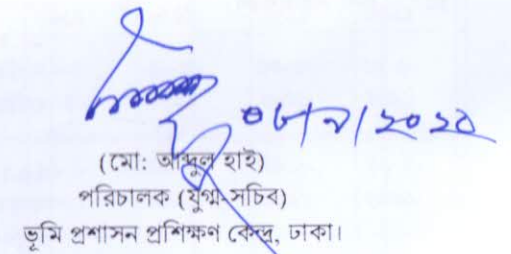 ০৮/৯/২০২০
(মো: আব্দুল হাই)
পরিচালক (যুগ্ম-সচিব)
ভূমি প্রশাসন প্রশিক্ষণ কেন্দ্র, ঢাকা।